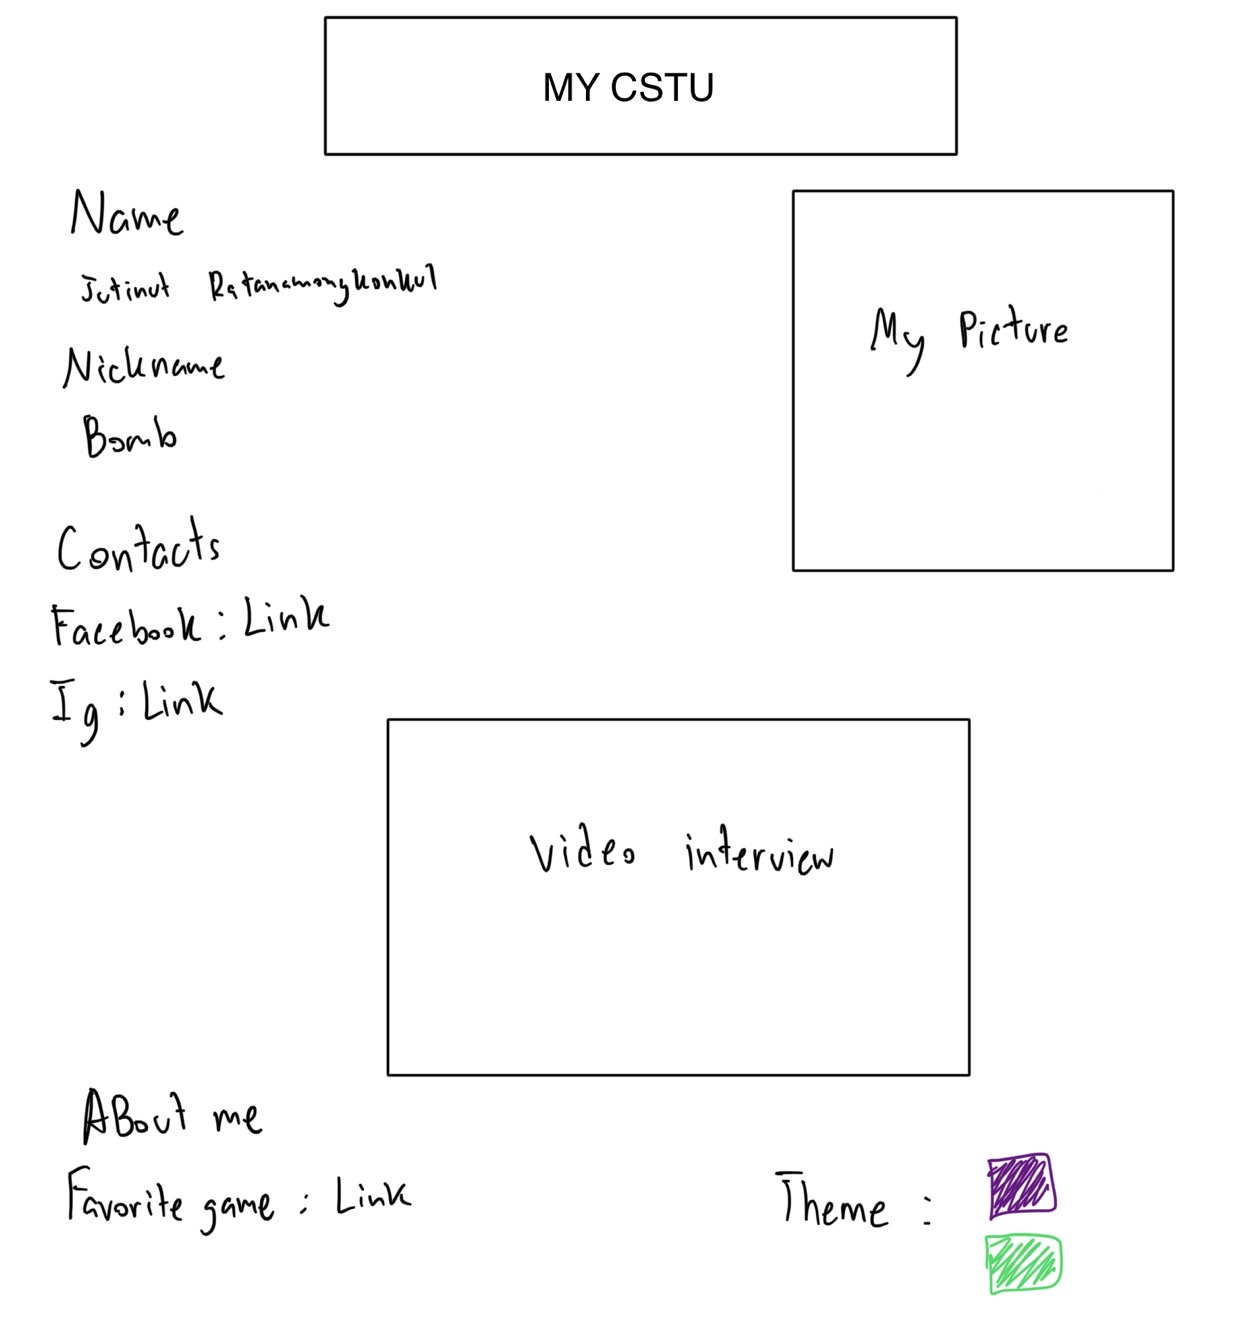 MY CSTU
Name
Jutinut Ratanamongkonkul
My Picture
Nickname
Bomb
Contacts
Facebook : Link
Ig : Link
Video interview
ABout me
Favorite game : Link
Theme :